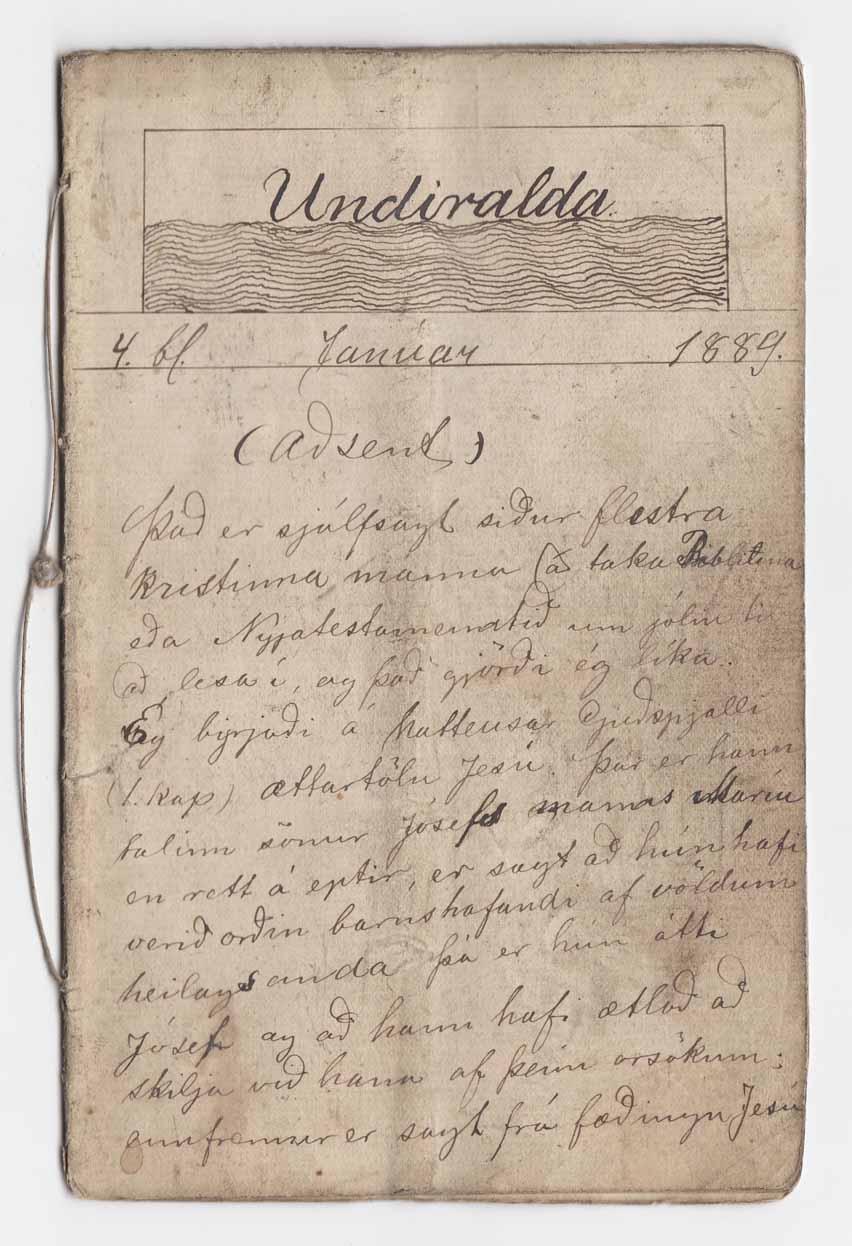 Undiralda.
4. bl. Janúar 1889.
(Aðsent)
Það er sjálfsagt siður flestra
kristinna manna að taka Biblíuna
eða Nýjatestamentið um jólin ti
að lesa í, og það gjörði ég líka.
Ég byrjaði á Matteusar Guðspjalli
(1. kap) ættartölu Jesú. Þar er hann
talinn sonur Jósefs manns Maríu
en rétt á eptir, er sagt að hún hafi
verið orðin barnshafandi af völdum
heilags anda þá er hún átti
Jósef og að hann hafi ætlað að
skilja við hana af þeim orsökum;
ennfremur er sagt frá fæðingu Jesú